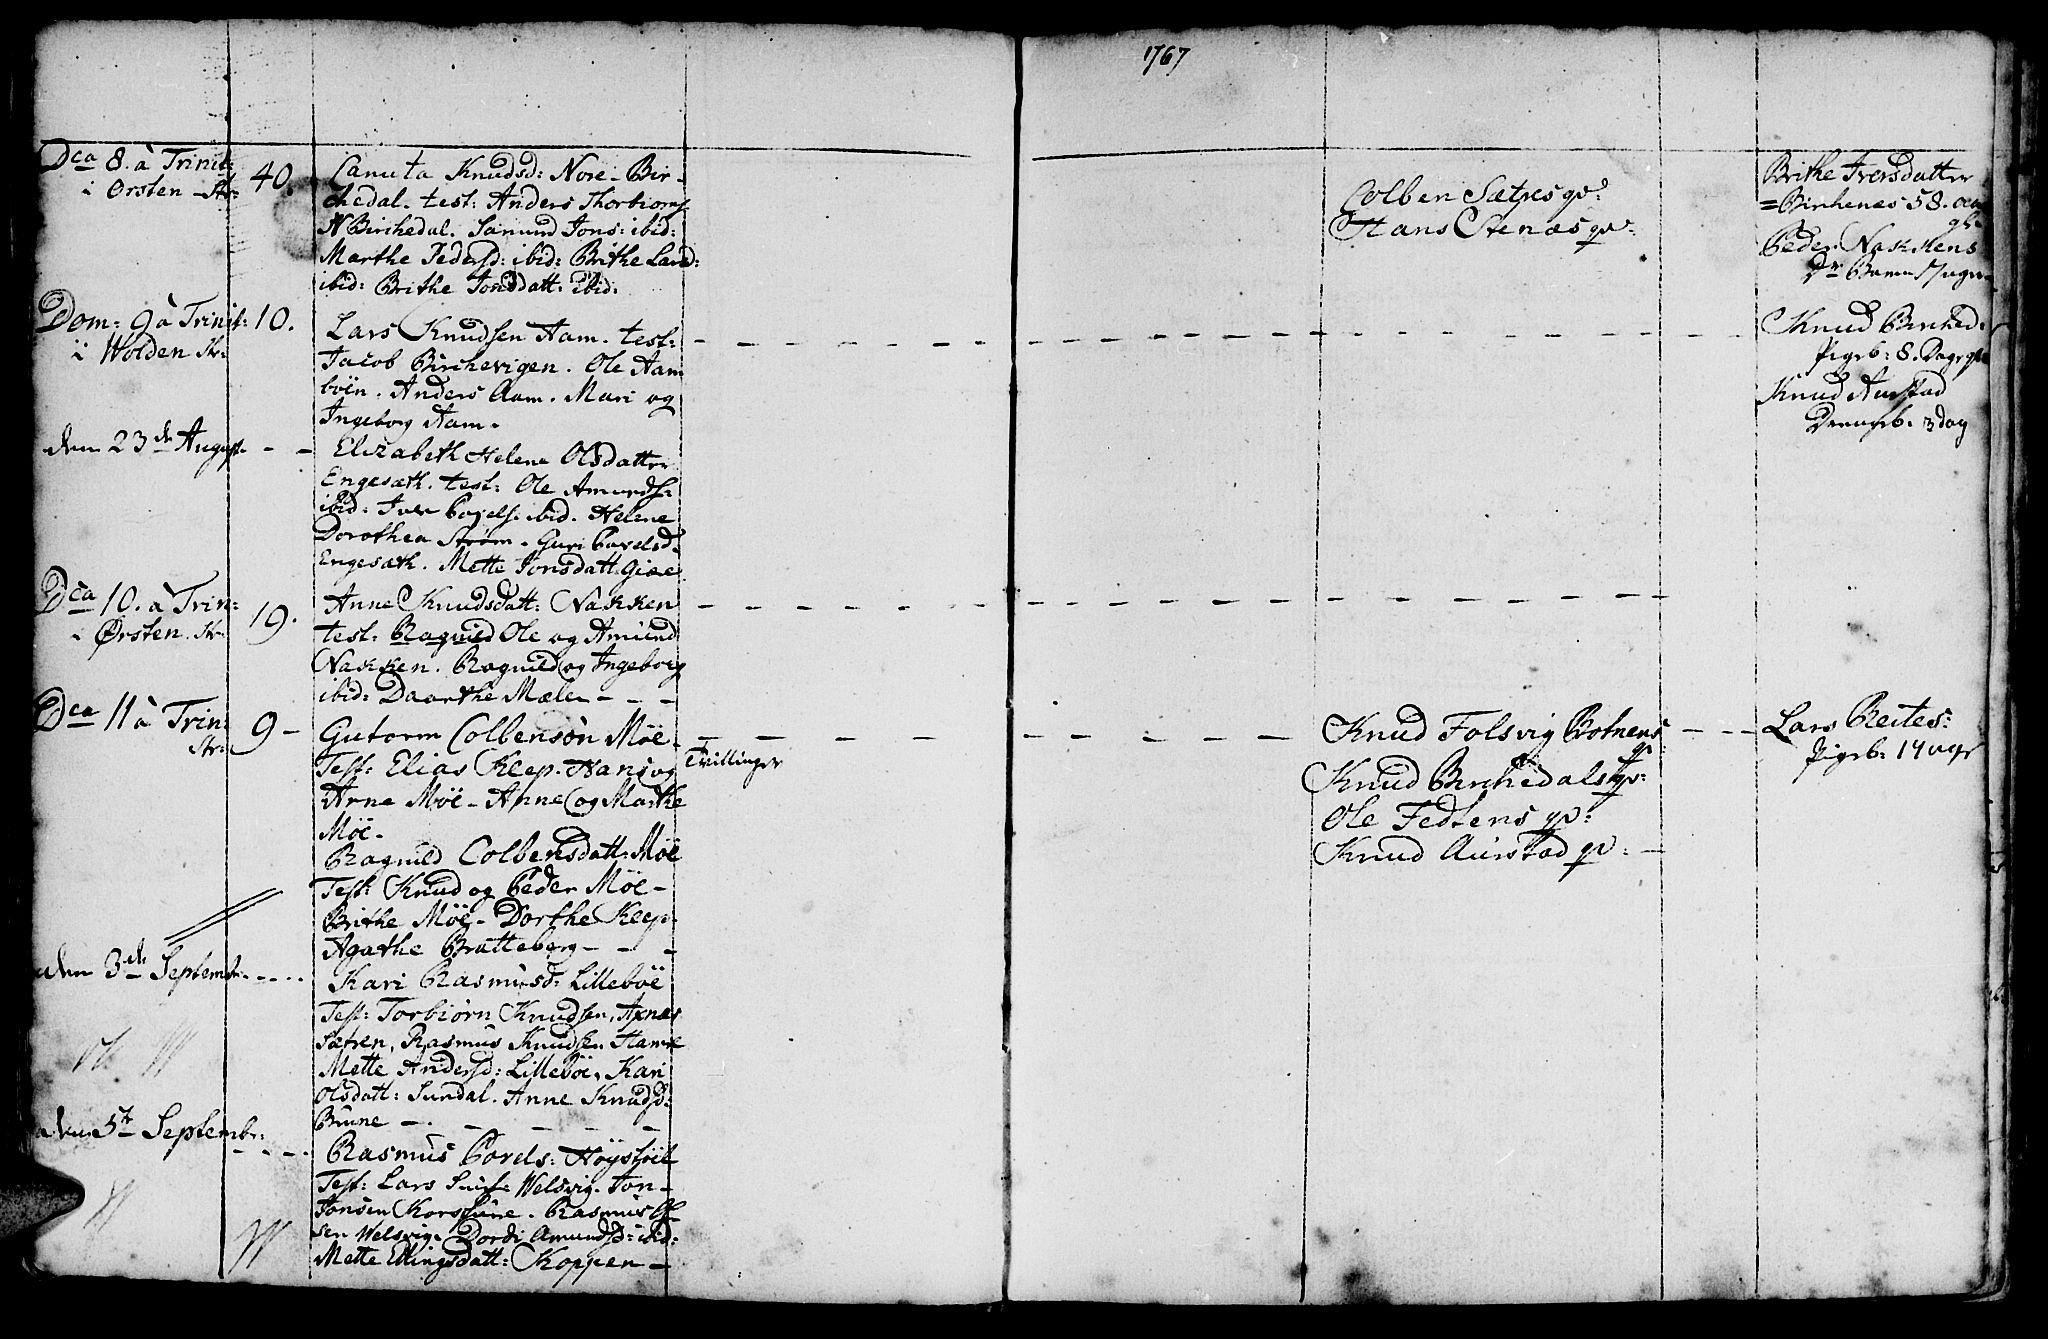 1767
Dca 8. à Trinit:
i Ørsten Str:
40.
Canuta Knudsd: Nore-Bir-
chedal. test: Anders Thorbiorns
N Birchedal. Samund Jons: ibid:
Marthe Pedersd: ibid: Brithe Larsd:
ibid: Brithe Jonsdatt: ibid:
Colben Sætres qv:
Hans Stenæs qv:
Brithe Iversdatter
=Birchenæs 58. aar
gl:
Peder Nakkens
Dr: Barn
Dom: 9 à Trinit:
i Wolden Str:
10.
Lars Knudsen Aam. test:
Jacob Birchevigen. Ole Aam
böen. Anders Aam. Mari og
Ingeborg Aam.
Knud Birched:
Pigeb: 8. Dage gl
Knud Aurstad
Drengb. 3 dag
den 23de August. - -
Elizabeth Helene Olsdatter
Engesæth. test: Ole Amunds:
ibid: Iver Povels: ibid. Helene
Dorothea Strøm. Guri Povelsd:
Engesæth. Mette Jonsdatt. Giøe
Dca 10. à Trin:
i Ørsten. Str:
19.
Anne Knudsdatt: Nakken
test: Ragnild Ole og Amund
Nakken. Ragnild og Ingeborg
ibid: Daarthe Mælen - - -
Dca 11 à Trin:
Str:
9 -
Gutorm Colbensön Möe-
Test: Elias Kleep. Hans og
Arne Möe - Anne og Marthe
Möe.
Tvillinger
Ragnild Colbensdatt: Möe
Test: Knud og Peder Möe-
Brithe Möe - Dorthe Kleep-
Agathe Bratteberg - - -
Knud Folsvig Botnens
qv
Knud Birchedals qv:
Ole Fedtens qv:
Knud Aurstad qv: -
Lars Reites:
Pigeb: 14 uger
den 3de Septembr. - - - -
Kari Rasmusd: Lillebøe
Test: Torbiörn Knudsen, Axnes
Sætren, Rasmus Knudsen Hamre
Mette Andersd: Lillebøe, Kari
Olsdatt: Sundal. Anne Knudsd:
Brune -
den 5te Septembr:
Rasmus Povels: Høystöel
Test: Lars Welsvig. Jon-
Jonsen Korssune. Rasmus Ol-
sen Welsvig. Dordi Amundsd: ibid:
Mette Ellingsdatt: Koppen -